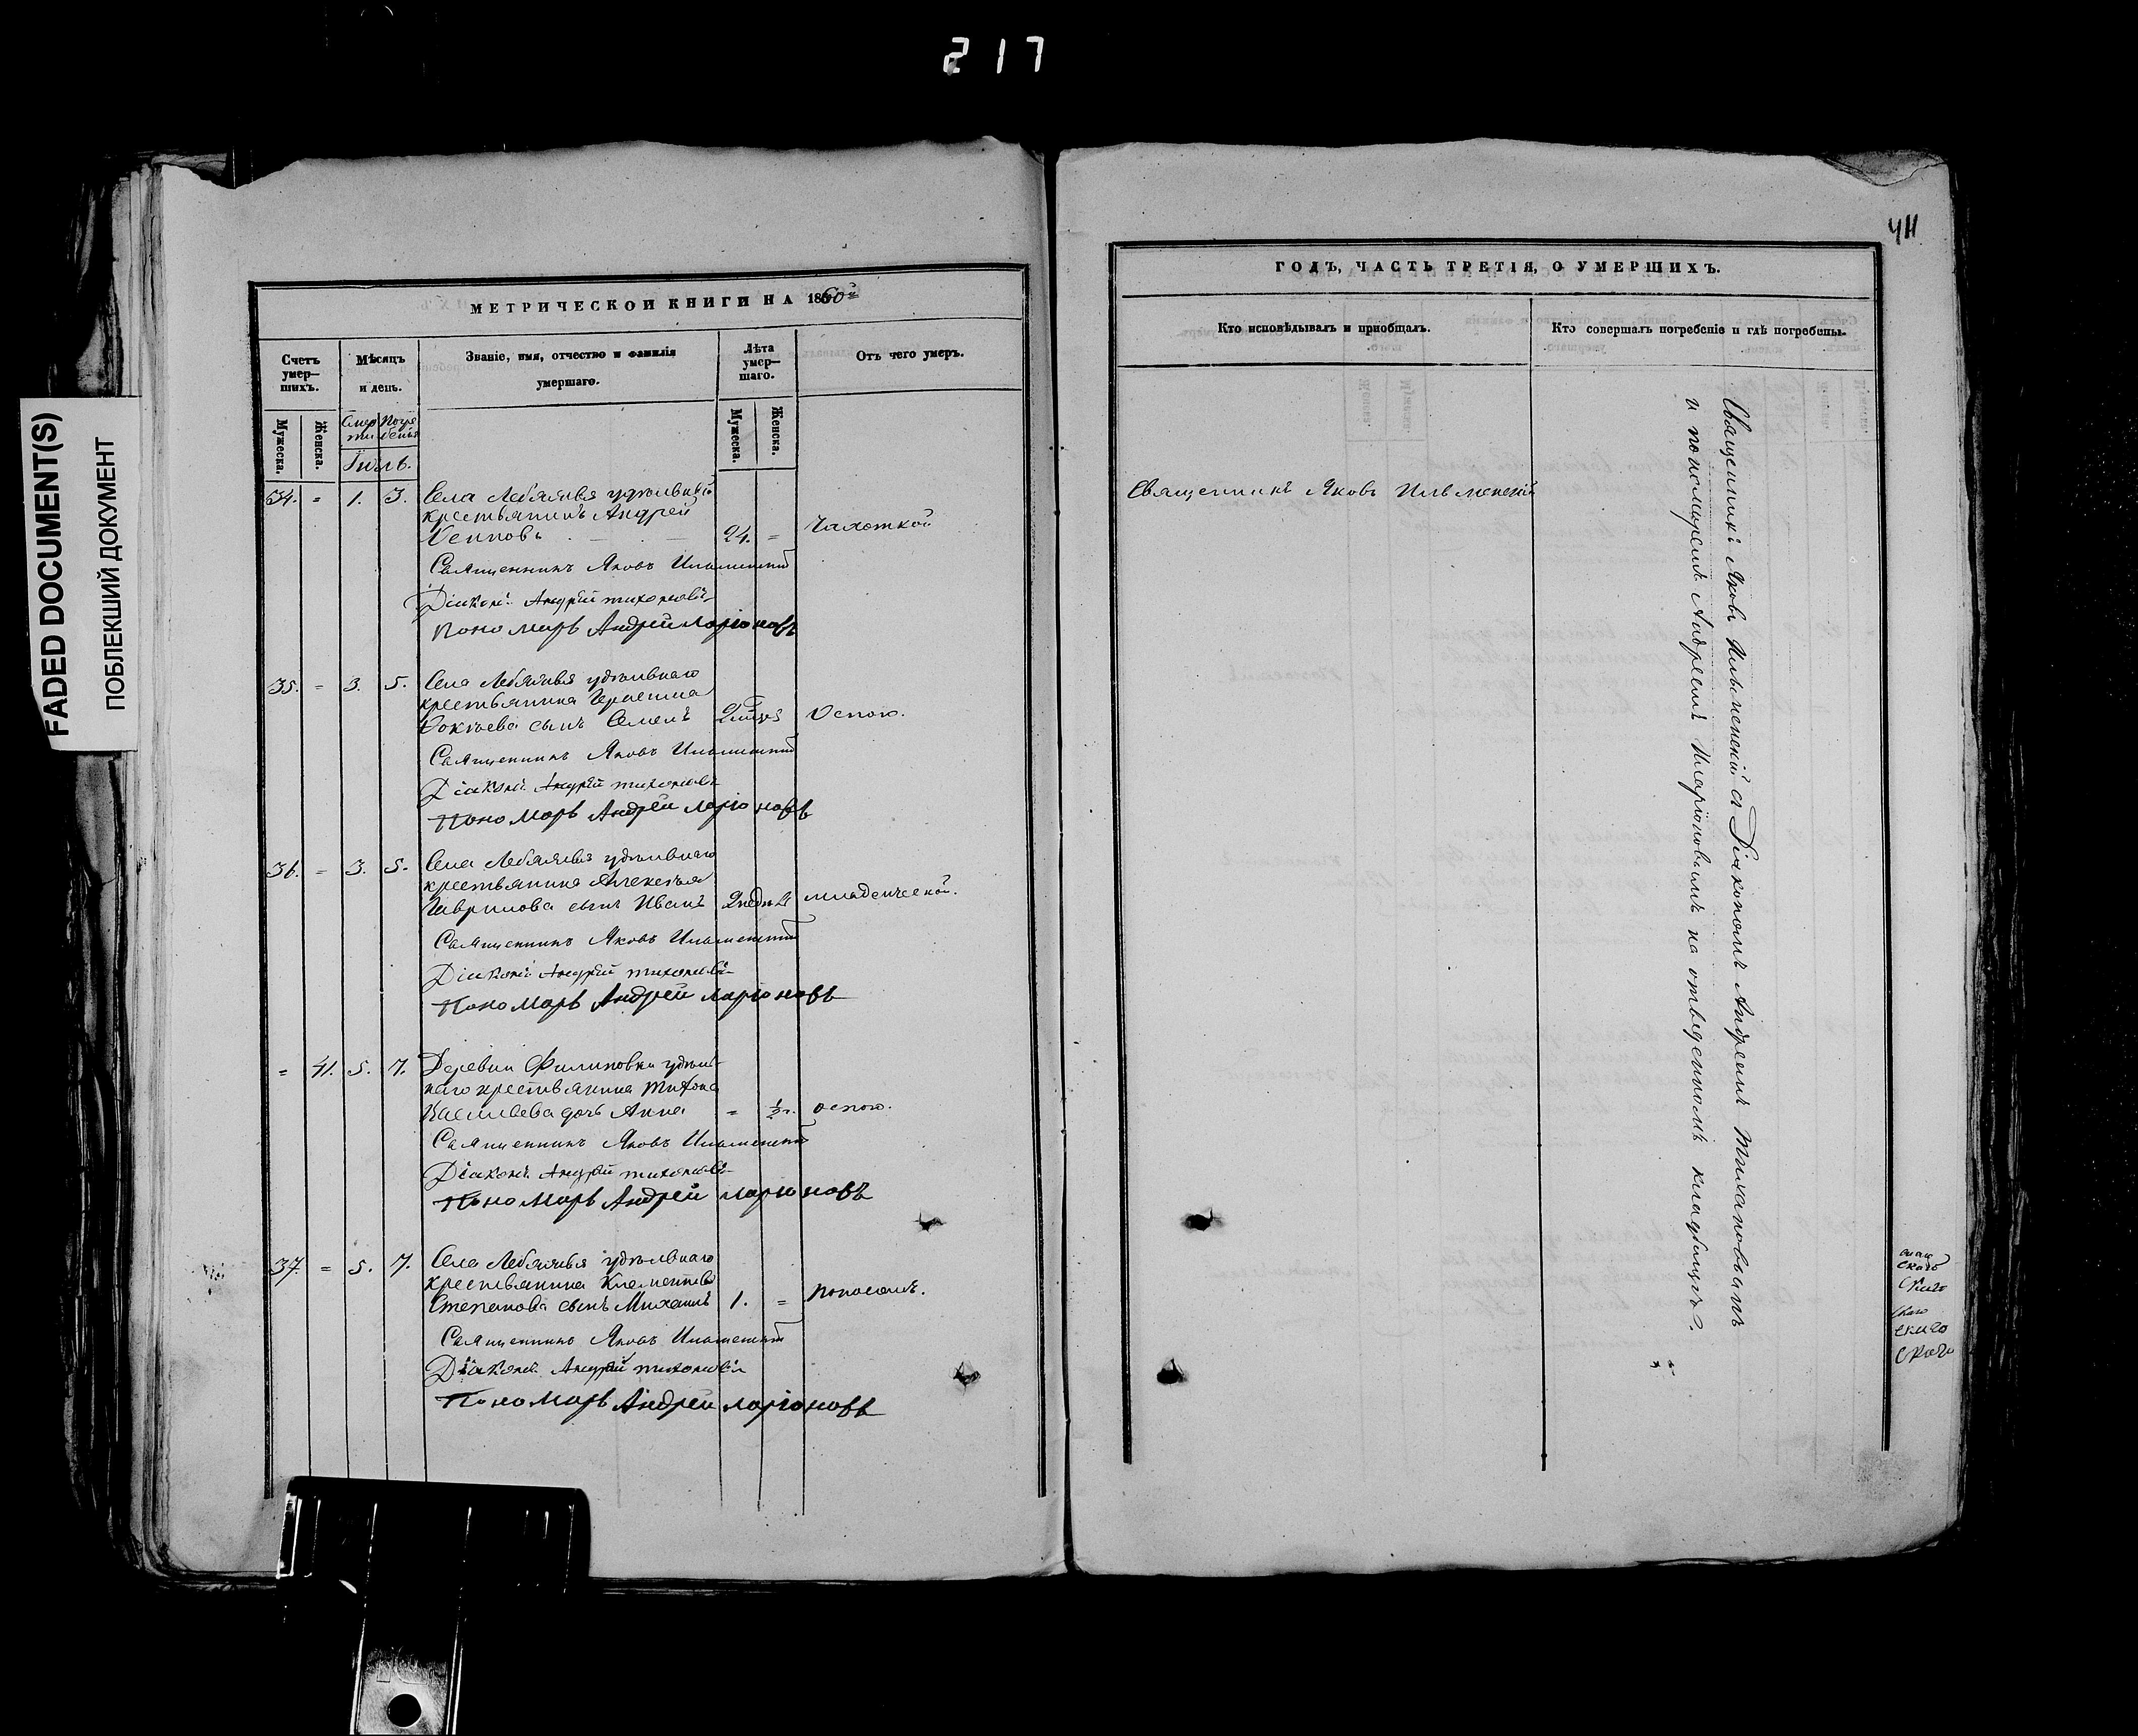 217
FADED DOCUMENT(S)
ПОБЛЕКШИЙ ДОКУМЕНТ
МЕТРИЧЕСКОЙ КНИГИ НА 1860й
Счетъ умер—шихъ.
Мѣсяцъ и день.
Званіе, имя, отчество и фамилія умершаго.
Лѣта умер—шаго.
Отъ чего умеръ.
Мужеска.
Женска.
Смерти
Погребенія
Мужеска.
Женска.
Іюль.
34. = 1. 3. Села Лебяжья удѣльный
крестьянинъ Андрей
24. = Чахоткой
Священникъ Яковъ Ильменский
Діаконъ Андрей Тихоновъ
Пономарь Андрей Ларіоновъ
35. = 3. 5. Села Лебяжья удѣльнаго
крестьянина
сынъ Семенъ Оспою.
Священникъ Яковъ Ильменский
Діаконъ Андрей Тихоновъ
Пономарь Андрей Ларіоновъ
36. = 3. 5. Села Лебяжья удѣльнаго
крестьянина Алексѣя
Гаврилова сынъ Иванъ 2 недѣль младенческой.
Священникъ Яковъ Ильменский
Діаконъ Андрей Тихоновъ
Пономарь Андрей Ларіоновъ
= 41. 5. 7. Деревни Филиповки удѣль-
наго крестьянина Тихона
Васильева дочь Анна = ½ г. оспою.
Священникъ Яковъ Ильменский
Діаконъ Андрей Тихоновъ
Пономарь Андрей Ларіоновъ
37. = 5. 7. Села Лебяжья удѣльнаго
крестьянина Клементья
Степанова сынъ Михаилъ 1. = поносомъ.
Священникъ Яковъ Ильменский
Діаконъ Андрей Тихоновъ
Пономарь Андрей Ларіоновъ
411
ГОДЪ, ЧАСТЬ ТРЕТІЯ, О УМЕРШИХЪ.
Кто исповѣдывалъ и пріобщалъ.
Кто совершалъ погребеніе и гдѣ погребены.
Священникъ Яковъ Ильменскій
Священникъ Яковъ Ильменскій съ Діакономъ Андреемъ Тихановымъ
и пономаремъ Андреемъ Иларіоновымъ на отведенномъ кладбищѣ.